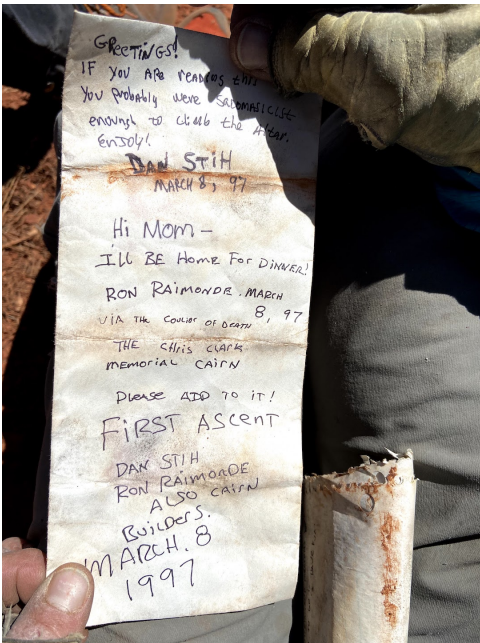 GReeTiNGS!
IF you ARe reaDiNg this
You probably were SadomasiclSt
enough to climb the Altar.
ENJOY!
DAN STiH
MARCH 8, 97
Hi Mom –
I'LL BE Home FoR DiNNER!
RON RAIMONDE. MARCH
8, 97
VIA THE COULIOR OF DEATH
THE CHRIS CLARK
MEMORIAL CAIRN
PLeASe ADD TO iT!
FiRST ASCENT
DAN STiH
RON RAiMONDE
ALSO CAiRN
BUiLDeRS.
MARCH. 8
1997